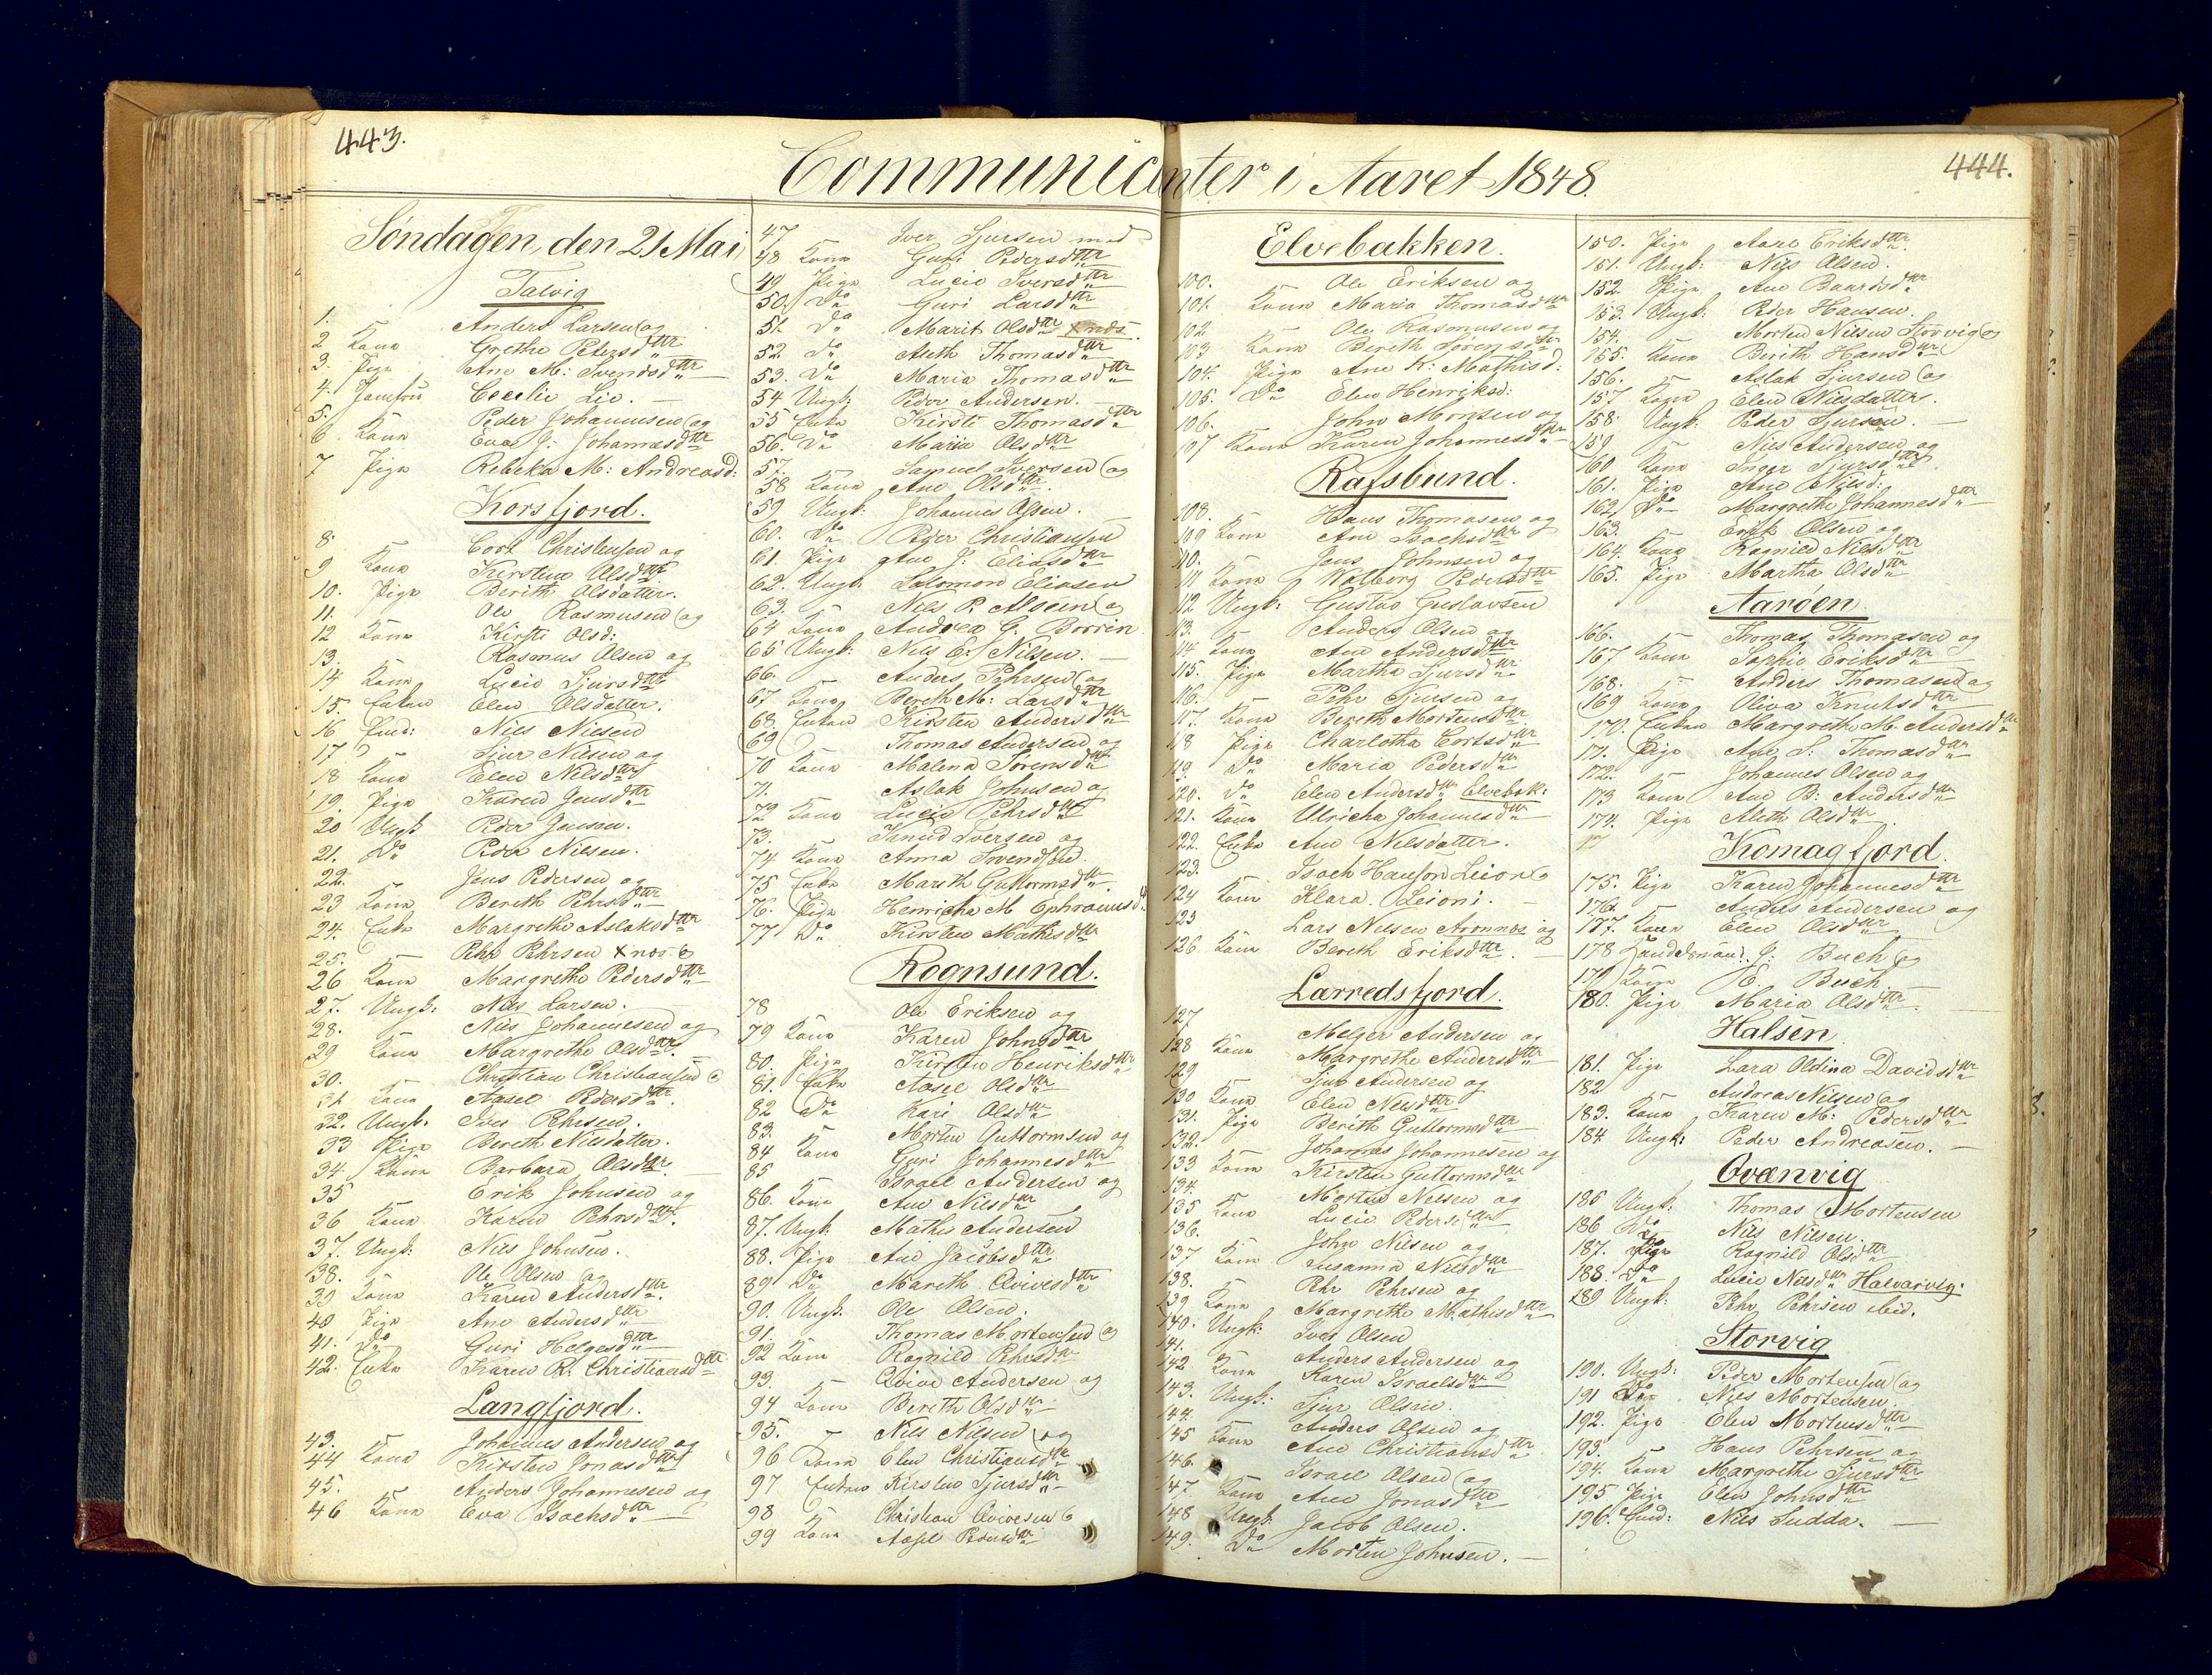 443.
444.
Communicanter i Aaret 1848.
Søndagen, den 21 Mai
Talvig
1. Anders Larsen og
2 Kone Grethe Petersdttr
3. Pige Ane M: Svendsdttr
4. Jomfru Cecilie Lie.
5. Peder Johannesen og
6. Kone Eva J: Johannesdttr
7 Pige Rebeka M: Andreasd:
Korsfjord.
8 Cort Christensen og
9 Kone Kirsten Olsdttr
10. Pige Berith Olsdatter.
11. Ole Rasmusen og
12 Kone Kirsti Olsd:
13. Rasmus Olsen og
14 Kone Lucie Sjursdttr
15. Enken Elen Olsdatter.
16 Emd: Nils Nilsen
17 Sjur Nilsen og
18 Kone Elen Nilsdttr
19. Pige Karen Jensdttr
20 Ungk Peder Jensen.
21. Do Peder Nilsen.
22. Jens Pedersen og
23 Kone Bereth Pehrsdttr
24. Enke Margrethe Aslaksdttr
25. Pehr Pehrsen x nos. og
26 Kone Margrethe Pedersdttr
27. Ungk: Nils Larsen.
28. Nils Johannesen og
29 Kone Margrethe Olsdttr.
30. Christian Christiansen og
31 Kone Aasel Pedersdttr.
32. Ungk. Iver Pehrsen.
33 Pige Bereth Nilsdatter.
34. Kone Barbara Olsdttr.
35 Erik Johnsen og
36 Kone Karen Pehrsdttr.
37. Ungk: Nils Johnsen.
38. Ole Olsen og
39 Kone Karen Andersdttr.
40 Pige Ane Andersdttr
41. Do Guri Helgesdttr
42. Enke Karen R. Christiansdttr
Langfjord.
43. Johannes Andersen og
44 Kone Kirsten Jonasdttr
45. Anders Johannesen og
46 Kone Eva Isachsdttr
47 Iver Sjursen med
48 Kone Guri Pedersdttr
49 Pige Lucie Iversdttr
50. Do Guri Larsdttr
51. Do Marit Olsdttr x nos.
52. Do Aleth Thomasdttr
53. Do Maria Thomasdttr
54. Ungk: Peder Andersen.
55 Enke Kirsti Thomasdttr
56. Do Maria Olsdttr
57. Samuel Iversen og
58 Kone Ane Olsdttr.
59 Ungk: Johannes Olsen.
60. Do Peder Christiansen
61. Pige Ane J. Eliasdttr
62. Ungk: Salomon Eliasen
63. Nils P. Alséen og
64 Kone Andrea G. Borrin
65 Ungk: Nils C. Nilsen.
66. Anders Pehrsen og
67 Kone Bereth M: Larsdttr
68. Enken Kirsten Andersdttr
69 Thomas Andersen og
70 Kone Malena Sørensdttr
71. Aslak Johnsen og
72 Kone Lucie Pehrsdttr
73. Knud Iversen og
74 Kone Anna Svendsen.
75 Enke Mareth Guttormsdttr.
76. Pige Henricha M Ephraimsdttr
77 Do Kirsten Mathisdttr
Rognsund.
78 Ole Eriksen og
79 Kone Karen Johnsdttr
80. Pige Kirsten Henriksdttr
81. Enke Aasel Olsdttr
82 Do Kari Olsdttr
83. Morten Guttormsen og
84 Kone Guri Johannesdttr
85 Israel Andersen og
86. Kone Ane Nilsdttr
87. Ungk: Mathis Andersen
88. Pige Ane Jacobsdttr
89 Do Mareth Qvivesdttr
90. Ungk: Ole Olsen.
91. Thomas Mortensen og
92 Kone Ragnild Pehrsdttr
93. Qvive Andersen og
94 Kone Bereth Olsdttr
95. Nils Nilsen og
96 Kone Elen Christiansdttr
97 Enken Kirsten Sjursdttr
98 Christian Qvivesen og
99 Kone Aasel Pedersdttr
Elvebakken.
100. Ole Eriksen og
101. Kone Maria Thomasdttr
102. Ole Rasmusen og
103 Kone Bereth Sørensdttr
104. Pige Ane K: Mathisd:
105. Do Elen Henriksd:
106. John Monsen og
107 Kone Karen Johannesdttr
Rafsbund.
108. Hans Thomasen og
109 Kone Ane Isachsdttr
110. Jens Johnsen og
111 Kone Walborg Pedersdttr
112 Ungk: Gustav Gustavsen
113. Anders Olsen og
114 Kone Ane Andersdttr
115. Pige Martha Sjursdttr
116. Pehr Sjursen og
117. Kone Bereth Mortensdttr
118 Pige Charlotha Cortsdttr
119. Do Maria Pedersdttr
120. Do Elen Andersdttr Elvebak:
121. Kone Ulricha Johannesdttr
122. Enke Ane Nilsdatter.
123. Isach Hanson Leion og
124 Kone Klara Leioni.
125 Lars Nilsen Aronnæs og
126 Kone Bereth Eriksdttr.
Larredsfjord.
127 Melger Andersen og
128 Kone Margrethe Andersdttr
129 Sjur Andersen og
130 Kone Elen Nilsdttr
131. Pige Berith Guttormsdttr
132. Johannes Johannesen og
133 Kone Kirsten Guttormsdttr
134. Morten Nilsen og
135 Kone Lucie Pedersdttr
136. John Nilsen og
137 Kone Susanna Nilsdttr
138. Pehr Pehrsen og
139 Kone Margrethe Mathisdttr
140. Ungk: Iver Olsen
141. Anders Andersen og
142 Kone Karen Israelsdttr
143. Ungk: Sjur Olsen.
144. Anders Olsen og
145 Kone Ane Christiansdttr
146. Israel Olsen og
147 Kone Ane Jonasdttr
148 Ungk: Jacob Olsen.
149. Do Morten Johnsen.
150. Pige Aasel Eriksdttr.
151. Ungk: Nils Olsen.
152. Pige Ane Baardsdttr
153. Ungk: Peder Hansen.
154. Morten Nilsen Storvig og
155. Kone Berith Hansdttr
156. Aslak Sjursen og
157 Kone Elen Nilsdatter.
158. Ungk: Peder Sjursen.
159 Nils Andersen og
160 Kone Inger Sjursdttr
161. Pige Ane Nilsd:
162. Do Margrethe Johannesdttr
163. Erik Olsen og
164. Kone Ragnild Nilsdttr
165. Pige Martha Olsdttr
Aarøen.
166. Thomas Thomasen og
167 Kone Sophie Eriksdttr
168. Anders Thomasen og
169 Kone Oliva Knutsdttr
170. Enken Margreth M. Andersdttr
171. Pige Ane S: Thomasdttr
172. Johannes Olsen og
173 Kone Ane B: Andersdttr
174. Pige Aleth Olsdttr
17
Komagfjord.
175. Pige Karen Johannesdttr
176. Anders Andersen og
177. Kone Elen Olsdttr
178 Handelsman: J: Buch og
179 Kone E. Buch.
180. Pige Maria Olsdttr.
Halsen
181. Pige Lara Oldina Davidsdttr
182 Andreas Nilsen og
183. Kone Karen M: Pedersdttr
184 Ungk: Peder Andreasen.
Qvænvig
185 Ungk: Thomas Mortensen
186 Do Nils Nilsen.
187. Pige Ragnild Olsdttr
188. Do Lucie Nilsdttr Halvarvig.
189 Ungk: Pehr Pehrsen ibid.
Storvig
190. Ungk: Peder Mortensen og
191 Do Nils Mortensen.
192. Pige Elen Mortensdttr
193. Hans Pehrsen og
194. Kone Margrethe Sjursdttr
195 Pige Elen Johnsdttr
196. Emd: Nils Sudda.